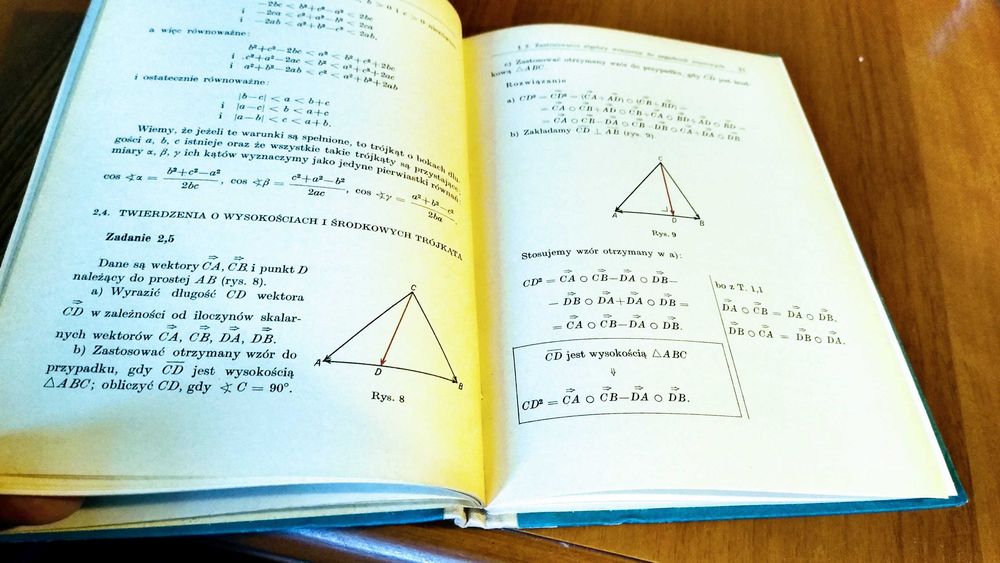 −2bc < b²+c²−a² < 2bc
i −2ca < c²+a²−b² < 2ca
i −2ab < a²+b²−c² < 2ab.
a więc równoważne:
b²+c²−2bc < a² < b²+c²+2bc
i c²+a²−2ac < b² < c²+a²+2ac
i a²+b²−2ab < c² < a²+b²+2ab
i ostatecznie równoważne:
|b−c| < a < b+c
i |a−c| < b < a+c
i |a−b| < c < a+b.
Wiemy, że jeżeli te warunki są spełnione, to trójkąt o bokach dłu-
gości a, b, c istnieje oraz że wszystkie takie trójkąty są przystające;
miary α, β, γ ich kątów wyznaczymy jako jedyne pierwiastki równań
cos ∢α = (b²+c²−a²)/2bc, cos ∢β = (c²+a²−b²)/2ac, cos ∢γ = (a²+b²−c²)/2ba.
2,4. TWIERDZENIA O WYSOKOŚCIACH I ŚRODKOWYCH TRÓJKĄTA
Zadanie 2,5
Dane są wektory C͞A⃗, C͞B⃗ i punkt D
należący do prostej AB (rys. 8).
a) Wyrazić długość CD wektora
C͞D⃗ w zależności od iloczynów skalar-
nych wektorów C͞A⃗, C͞B⃗, D͞A⃗, D͞B⃗.
b) Zastosować otrzymany wzór do
przypadku, gdy C̅D̅ jest wysokością
△ABC; obliczyć CD, gdy ∢ C = 90°.
C
A
D
B
Rys. 8
c) Zastosować otrzymany wzór do przypadku, gdy C̅D̅ jest środ-
kową △ABC.
Rozwiązanie
b) Zakładamy C̅D̅ ⊥ A̅B̅ (rys. 9).
C
A
D
B
Rys. 9
Stosujemy wzór otrzymany w a):
CD² = C͞A⃗ ○ C͞B⃗−D͞A⃗ ○ D͞B⃗−
− D͞B⃗ ○ D͞A⃗+D͞A⃗ ○ D͞B⃗ =
= C͞A⃗ ○ C͞B⃗−D͞A⃗ ○ D͞B⃗.
bo z T. 1,1
D͞A⃗ ○ C͞B⃗ = D͞A⃗ ○ D͞B⃗.
D͞B⃗ ○ C͞A⃗ = D͞B⃗ ○ D͞A⃗.
C̅D̅ jest wysokością △ABC
⇓
CD² = C͞A⃗ ○ C͞B⃗−D͞A⃗ ○ D͞B⃗.